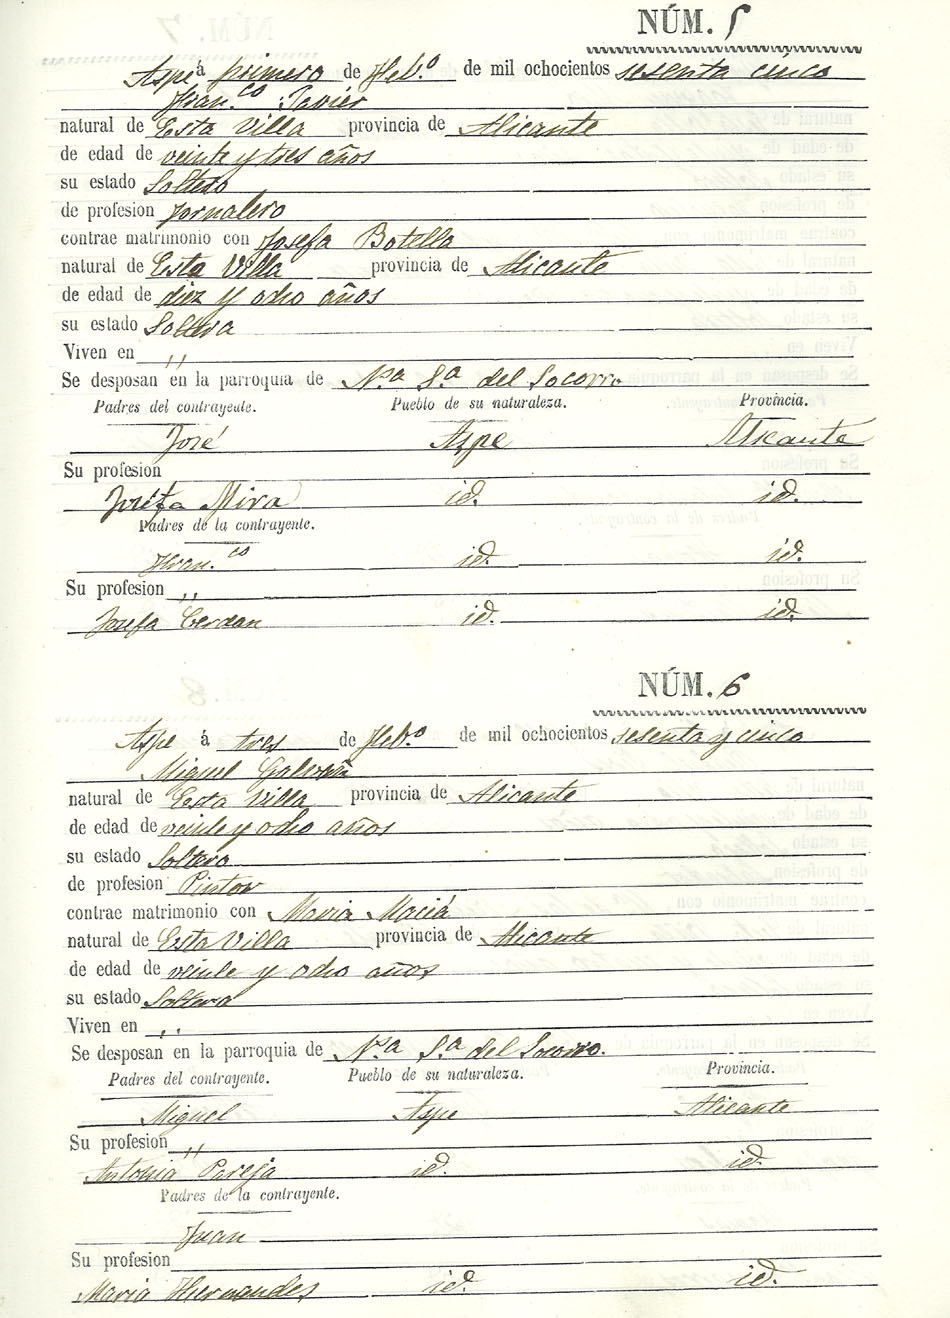 NÚM. 5
Aspe á primero de Feb.o de mil ochocientos sesenta cinco
Fran.co Javier
natural de Esta Villa provincia de Alicante
de edad de veinte y tres años
su estado Soltero
de profesion Jornalero
contrae matrimonio con Josefa Botella
natural de Esta Villa provincia de Alicante
de edad de diez y ocho años
su estado Soltera
Viven en ,,
Se desposan en la parroquia de N.a S.a del Socorro
Padres del contrayente. Pueblo de su naturaleza. Provincia.
José Aspe Alicante
Su profesion
Josefa Mira id. id.
Padres de la contrayente.
Fran.co id. id.
Su profesion ,,
Josefa Cerdan id. id.
NÚM. 6
Aspe á tres de Feb.o de mil ochocientos sesenta y cinco
Miguel Galvañ
natural de Esta Villa provincia de Alicante
de edad de veinte y ocho años
su estado Soltero
de profesion Pintor
contrae matrimonio con Maria Maciá
natural de Esta Villa provincia de Alicante
de edad de veinte y ocho años
su estado Soltera
Viven en ,,
Se desposan en la parroquia de N.a S.a del Socorro.
Padres del contrayente. Pueblo de su naturaleza. Provincia.
Miguel Aspe Alicante
Su profesion ,,
Antonia Pareja id. id.
Padres de la contrayente.
Juan
Su profesion
Maria Hernandes id. id.